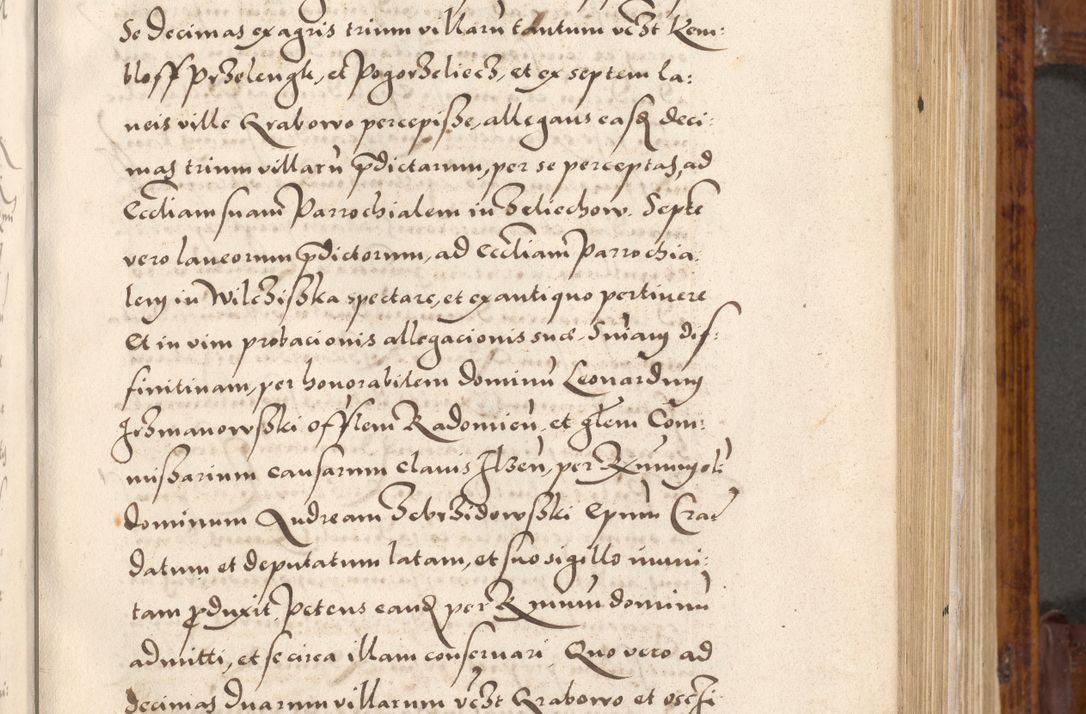 Se decimas ex agris trium villarũ tantum vczt Kem:
bloff Przelengk, et Pogorzeliecz, et ex septem la:
neis ville Grabowo percepisse, allegans easq deci:
mas trium villarũ pdictarum, per se perceptas, ad
Eccliam suam Parrochialem in Zeliechow. Septe
vero laneorum pdictorum, ad Eccliam Parrochia
lem in Wilczisska spectare, et ex antiquo pertinere
Et in vim probacionis allegacionis suæ. Sniam dif:
finitinam, per honorabilem dominũ Leonardum
Irzmanowsski offlem Radomień, et glem Com:
missarium causarum Clavis Ilzeń, per Rmum ol:
dominum Andream Zebrzidowsski Epum Crac
datum et deputatum latam, et suo sigillo muni:
tam pduxit. Petens eand per Rmum dominũ
admitti, et se circa illam conservari. Quo vero ad
decimas duarum villarum vczt Grabowo et